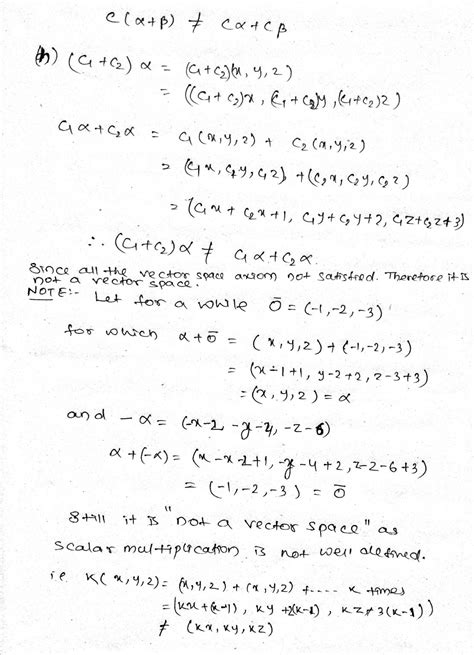 C(α+β) ≠ Cα+Cβ
(h) (C₁+C₂) α = (C₁+C₂)(x, y, z)
= ((C₁+C₂)x, (C₁+C₂)y, (C₁+C₂)z)
C₁α+C₂α = C₁(x, y, z) + C₂(x, y, z)
= (C₁x, C₁y, C₁z) + (C₂x, C₂y, C₂z)
= (C₁x + C₂x+1, C₁y+C₂y+2, C₁z+C₂z+3)
∴ (C₁+C₂)α ≠ C₁α+C₂α.
Since all the vector space axiom not satisfied. Therefore it is
not a vector space.
NOTE:- Let for a while 0̄ = (-1, -2, -3)
for which α+0̄ = (x, y, z) + (-1, -2, -3)
= (x-1+1, y-2+2, z-3+3)
= (x, y, z) = α
and -α = (-x-2, -y-4, -z-6)
α+(-α) = (x-x-2+1, -y-4+2, z-z-6+3)
= (-1, -2, -3) = 0̄
Still it is "not a vector space" as
scalar multiplication is not well defined.
i.e. K(x, y, z) = (x, y, z) + (x, y, z) +.... K times
= (kx+(k-1), ky+2(k-1), kz+3(k-1))
≠ (kx, ky, kz)